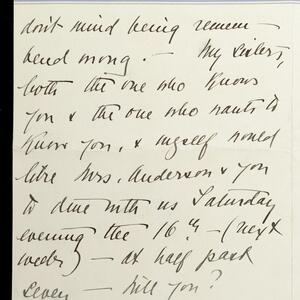 don't mind being remem-
bered wrong. - My sisters,
both the one who knows
you & the one who wants to
know you, & myself would
like Mrs. Anderson & you
to dine with us Saturday
evening the 16th - (next
week) - at half past
seven - will you?